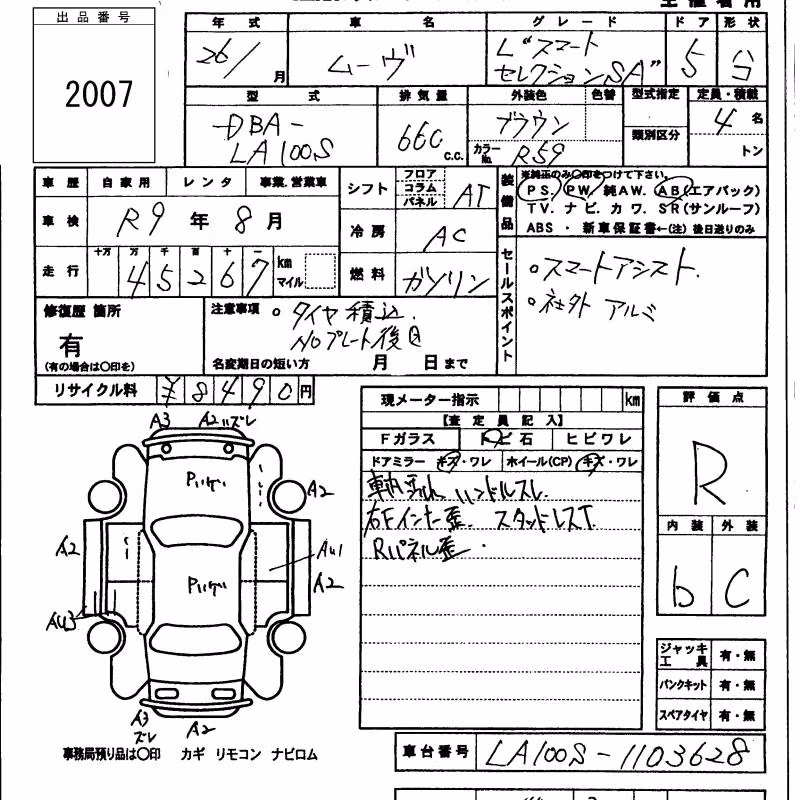 出品番号
2007
年式 車名 グレード ドア 形状
26/ 月 ムーヴ L"スマート セレクションSA" 5 台
型式 排気量 外装色 色替 型式指定 定員・積載
DBA-LA100S 660 c.c. ブラウン カラーNo. R59 類別区分 4 名 トン
車歴 自家用 レンタ 事業.営業車
車検 R9 年 8 月
走行 十万 万 千 百 十 一
45267 km マイル
シフト フロア コラム パネル AT
冷房 AC
燃料 ガソリン
装備品 ※純正のみ〇印をつけて下さい。
PS. PW. 純AW. AB(エアバック)
TV. ナビ. カワ. SR(サンルーフ)
ABS ・ 新車保証書←(注) 後日送りのみ
セールスポイント
○スマートアシスト.
○社外 アルミ
修復歴 箇所
有
(有の場合は〇印を)
注意事項 ○ タイヤ積込.
NOプレート後日
名変期日の短い方 月 日まで
リサイクル料 ¥8490円
現メーター指示 km
【査定員記入】
Fガラス トビ石 ヒビワレ
ドアミラー キズ・ワレ ホイール(CP) キズ・ワレ
ハンドルスレ
右Fインナー歪. スタッドレスT.
Rパネル歪.
評価点
R
内装 外装
b C
A3 A2 ズレ
A2
A2
AU1
A2
AU3
A3 ズレ
A2
ジャッキ工具 有・無
パンクキット 有・無
スペアタイヤ 有・無
事務局預り品は〇印 カギ リモコン ナビロム
車台番号 LA100S-1103628